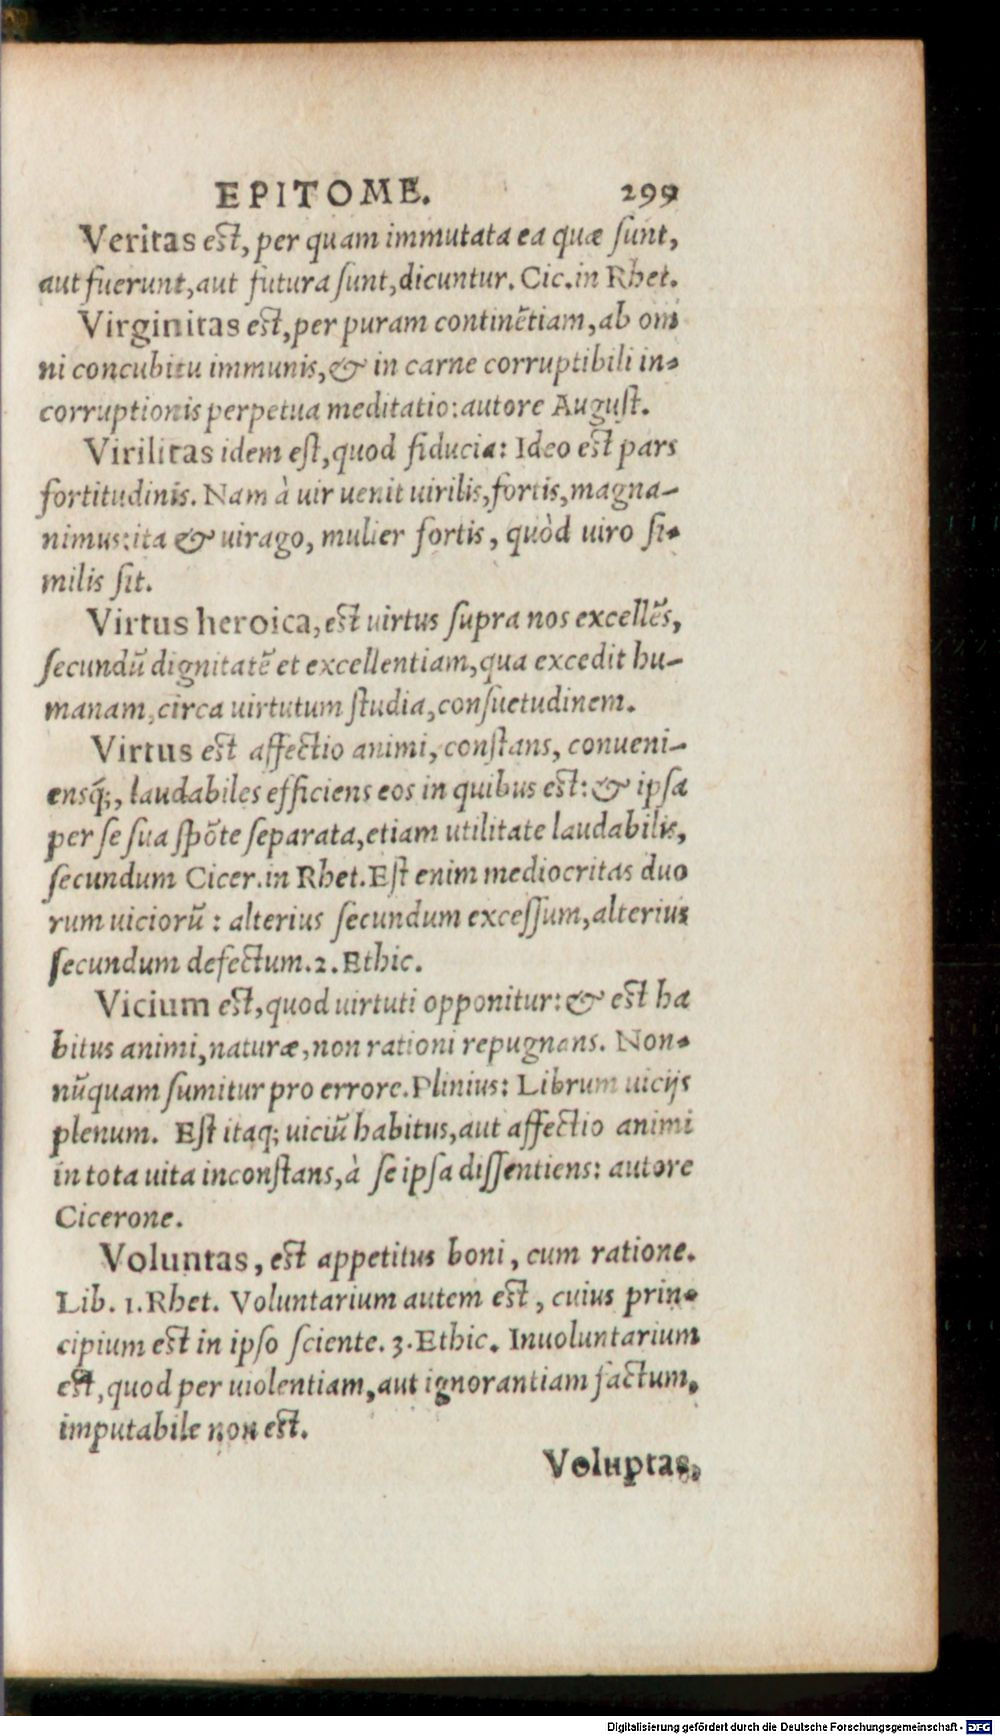 EPITOME. 299
Veritas est, per quam immutata ea quæ ſunt,
aut fuerunt, aut futura ſunt, dicuntur. Cic. in Rhet.
Virginitas est, per puram continẽtiam, ab om
ni concubitu immunis, & in carne corruptibili in-
corruptionis perpetua meditatio: autore Auguſt.
Virilitas idem eſt, quod fiducia: Ideo est pars
fortitudinis. Nam à uir uenit uirilis, fortis, magna-
nimus: ita & uirago, mulier fortis, quòd uiro ſi-
milis ſit.
Virtus heroica, est uirtus ſupra nos excellẽs,
ſecundũ dignitatẽ et excellentiam, qua excedit hu-
manam, circa uirtutum ſtudia, conſuetudinem.
Virtus est affectio animi, conſtans, conueni-
ensq́;, laudabiles efficiens eos in quibus est: & ipſa
per ſe ſua ſpõte ſeparata, etiam utilitate laudabilis,
ſecundum Cicer. in Rhet. Eſt enim mediocritas duo
rum uiciorũ: alterius ſecundum exceſſum, alterius
ſecundum defectum. 2. Ethic.
Vicium est, quod uirtuti opponitur: & est ha
bitus animi, naturæ, non rationi repugnans. Non-
nũquam ſumitur pro errore. Plinius: Librum uicijs
plenum. Eſt itaq; uiciũ habitus, aut affectio animi
in tota uita inconſtans, à ſe ipſa diſſentiens: autore
Cicerone.
Voluntas, est appetitus boni, cum ratione.
Lib. 1. Rhet. Voluntarium autem est, cuius prin-
cipium est in ipſo ſciente. 3. Ethic. Inuoluntarium
est, quod per uiolentiam, aut ignorantiam factum,
imputabile non est.
Voluptas,
Digitalisierung gefördert durch die Deutsche Forschungsgemeinschaft - DFG